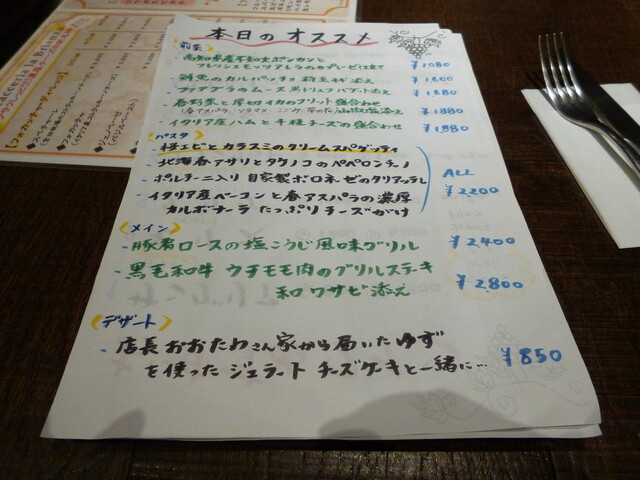 本日のオススメ
前菜
- 高知県産不知火ポンカンと
フレッシュモッツアレラのカプレーゼ仕立て ¥1,080
- 鮮魚のカルパッチョ 添え ¥1,600
- フォアグラのムース 黒トリュフ バゲット添え ¥1,680
- 春野菜と厚切イカのフリット 盛合わせ ¥1,880
- イタリア産ハムと千種チーズの盛合わせ ¥1,880
(パスタ)
- 桜エビとカラスミのクリームスパゲッティ
- 北海春アサリとタケノコのペペロンチーノ
- ポルチーニ入り自家製ボロネーゼのタリアッテレ
ALL
¥2200
- イタリア産ベーコンと春アスパラの濃厚
カルボナーラ たっぷりチーズがけ
(メイン)
- 豚肩ロースの塩こうじ風味グリル ¥2,400
- 黒毛和牛 ウチモモ肉のグリルステーキ
和ワサビ添え ¥2,800
(デザート)
- 店長おおたわさん家から届いたゆず
を使ったジェラート チーズケーキと一緒に… ¥850